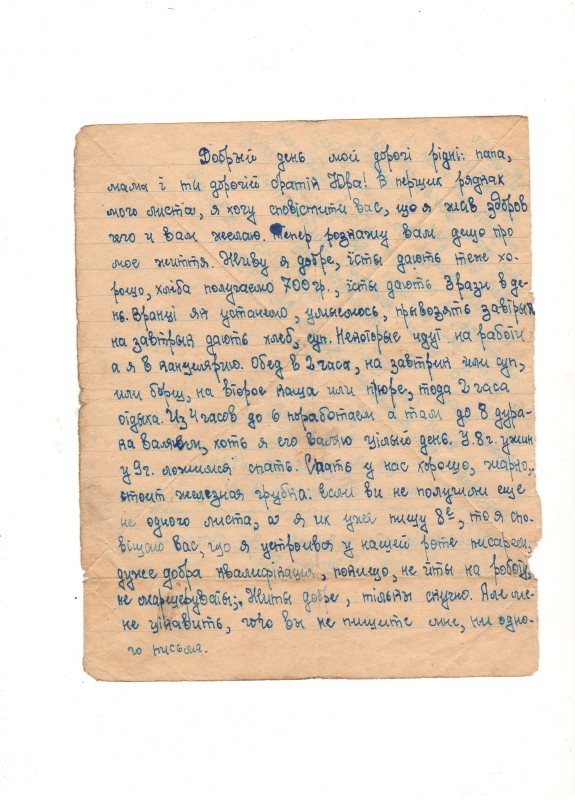 Добрий день мой дорогі рідні: папа,
мама і ти дорогій братій Юва! В перших рядках
мого листа, я хочу сповістити вас, що я жив здоров
чего и вам желаю. Тепер розкажу вам дещо про
мое життя. Живу я добре, їсты дають теже хо-
рошо, хліба получаемо 700 гр., їсты дають 3 рази в де-
нь. Вранці як устанемо, умыемось, прывозять завтрык
на завтрык дають хлеб, суп. Некоторые идут на работи
а я в канцелярию. Обед в 2 часа, на завтрик или суп,
или борщ, на второе каша или пюре, тода 2 часа
отдыха. Из 4 часов до 6 поработаем а там до 8 дура-
ка валяем, хоть я его валяю цілый день. У 8 г. ужин
у 9 г. ложимся спать. Спать у нас хорошо, жарко,
стоит железная грубка. Если ви не получили еще
не одного листа, а я их уже пишу 8й, то я спо-
віщаю вас, що я устроився у нашей роте писарем,
дуже добра квалификация, покищо, не йты на роботу,
не маршеруваты;. Жыты добре, тількы скучно. Але ме-
не цікавить, чого вы не пишите мне, ни одно-
го письма.